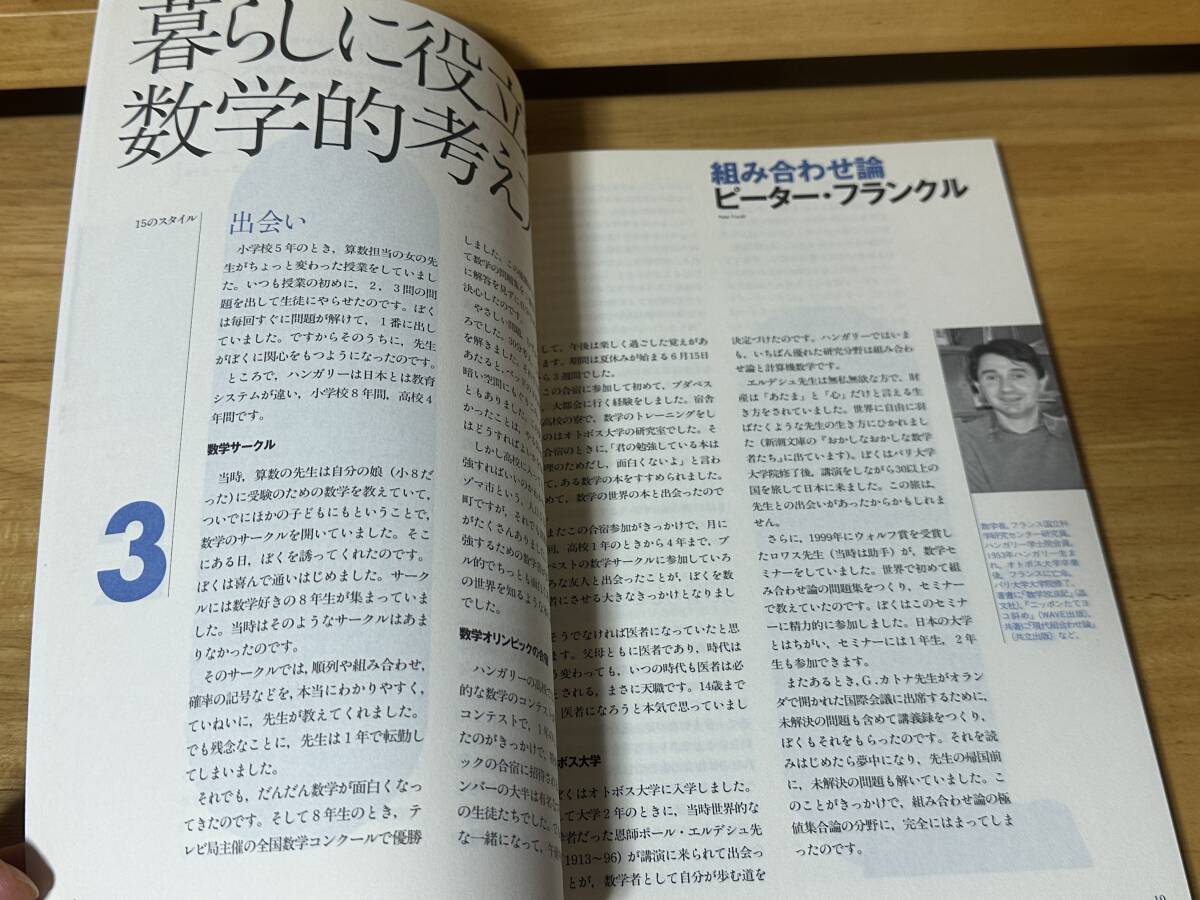 暮らしに役立
数学的考え
15のスタイル
3
出会い
小学校5年のとき，算数担当の女の先
生がちょっと変わった授業をしていまし
た。いつも授業の初めに，2，3問の問
題を出して生徒にやらせたのです。ぼく
は毎回すぐに問題が解けて，1番に出し
ていました。ですからそのうちに，先生
がぼくに関心をもつようになったのです。
ところで，ハンガリーは日本とは教育
システムが違い，小学校8年間，高校4
年間です。
数学サークル
当時，算数の先生は自分の娘（小8だ
った）に受験のための数学を教えていて，
ついでにほかの子どもにもということで，
数学のサークルを開いていました。そこ
にある日，ぼくを誘ってくれたのです。
ぼくは喜んで通いはじめました。サーク
ルには数学好きの8年生が集まっていま
した。当時はそのようなサークルはあま
りなかったのです。
そのサークルでは，順列や組み合わせ，
確率の記号などを，本当にわかりやすく，
ていねいに，先生が教えてくれました。
でも残念なことに，先生は1年で転勤し
てしまいました。
それでも，だんだん数学が面白くなっ
てきたのです。そして8年生のとき，テ
レビ局主催の全国数学コンクールで優勝
しました。この
て数学の問題集を
に解答を見ずに
決心したのです。
やさしい問題
ろでした。30分
を解きました。
あたると，ベッド
暗い空間にもぐ
ともありました。
かったことは，
はどうすればよい
しかし高校に入
強すればいいのか
ゾマ市という，人口
町ですが，それでも
がたくさんありまし
強するための数学
ル的でちっとも面白
の世界を知るような
でした。
数学オリンピックの合宿
ハンガリーの高校
的な数学のコンテスト
コンテストで，1年の
たのがきっかけで，
ックの合宿に招待され
ンバーの大半は有名
の生徒たちでした。
な一緒になって，午前
組み合わせ論
ピーター・フランクル
Peter Frankl
して，午後は楽しく過ごした覚えがあ
ます。期間は夏休みが始まる6月15日
から3週間でした。
この合宿に参加して初めて，ブダペス
，大都会に行く経験をしました。宿舎
高校の寮で，数学のトレーニングをし
のはオトボス大学の研究室でした。そ
合宿のときに，「君の勉強している本は
理のためだし，面白くないよ」と言わ
て，ある数学の本をすすめられました。
めて，数学の世界の本と出会ったので
またこの合宿参加がきっかけで，月に
回，高校1年のときから4年まで，ブ
ペストの数学サークルに参加していろ
な友人と出会ったことが，ぼくを数
者にさせる大きなきっかけとなりまし
そうでなければ医者になっていたと思
ます。父母ともに医者であり，時代は
う変わっても，いつの時代も医者は必
とされる，まさに天職です。14歳まで
医者になろうと本気で思っていまし
ボス大学
ぼくはオトボス大学に入学しました。
して大学2年のときに，当時世界的な
学者だった恩師ポール・エルデシュ先
1913～96）が講演に来られて出会っ
とが，数学者として自分が歩む道を
決定づけたのです。ハンガリーではいま
も，いちばん優れた研究分野は組み合わ
せ論と計算機数学です。
エルデシュ先生は無私無欲な方で，財
産は「あたま」と「心」だけと言える生
き方をされていました。世界に自由に羽
ばたくような先生の生き方にひかれまし
た（新潮文庫の『おかしなおかしな数学
者たち』に出ています）。ぼくはパリ大学
大学院修了後，講演をしながら30以上の
国を旅して日本に来ました。この旅は，
先生との出会いがあったからかもしれま
せん。
さらに，1999年にウォルフ賞を受賞し
たロワス先生（当時は助手）が，数学セ
ミナーをしていました。世界で初めて組
み合わせ論の問題集をつくり，セミナー
で教えていたのです。ぼくはこのセミナ
ーに精力的に参加しました。日本の大学
とはちがい，セミナーには1年生，2年
生も参加できます。
またあるとき，G.カトナ先生がオラン
ダで開かれた国際会議に出席するために，
未解決の問題も含めて講義録をつくり，
ぼくもそれをもらったのです。それを読
みはじめたら夢中になり，先生の帰国前
に，未解決の問題も解いていました。こ
のことがきっかけで，組み合わせ論の極
値集合論の分野に，完全にはまってしま
ったのです。
数学者。フランス国立科
学研究センター研究員。
ハンガリー学士院会員。
1953年ハンガリー生ま
れ。オトボス大学卒業
後，フランスに亡命。
パリ大学大学院修了。
著書に「数学放浪記」（晶
文社），「ニッポンたてヨ
コ斜め」（WAVE出版），
共著に「現代組合わせ論」
（共立出版）など。
19